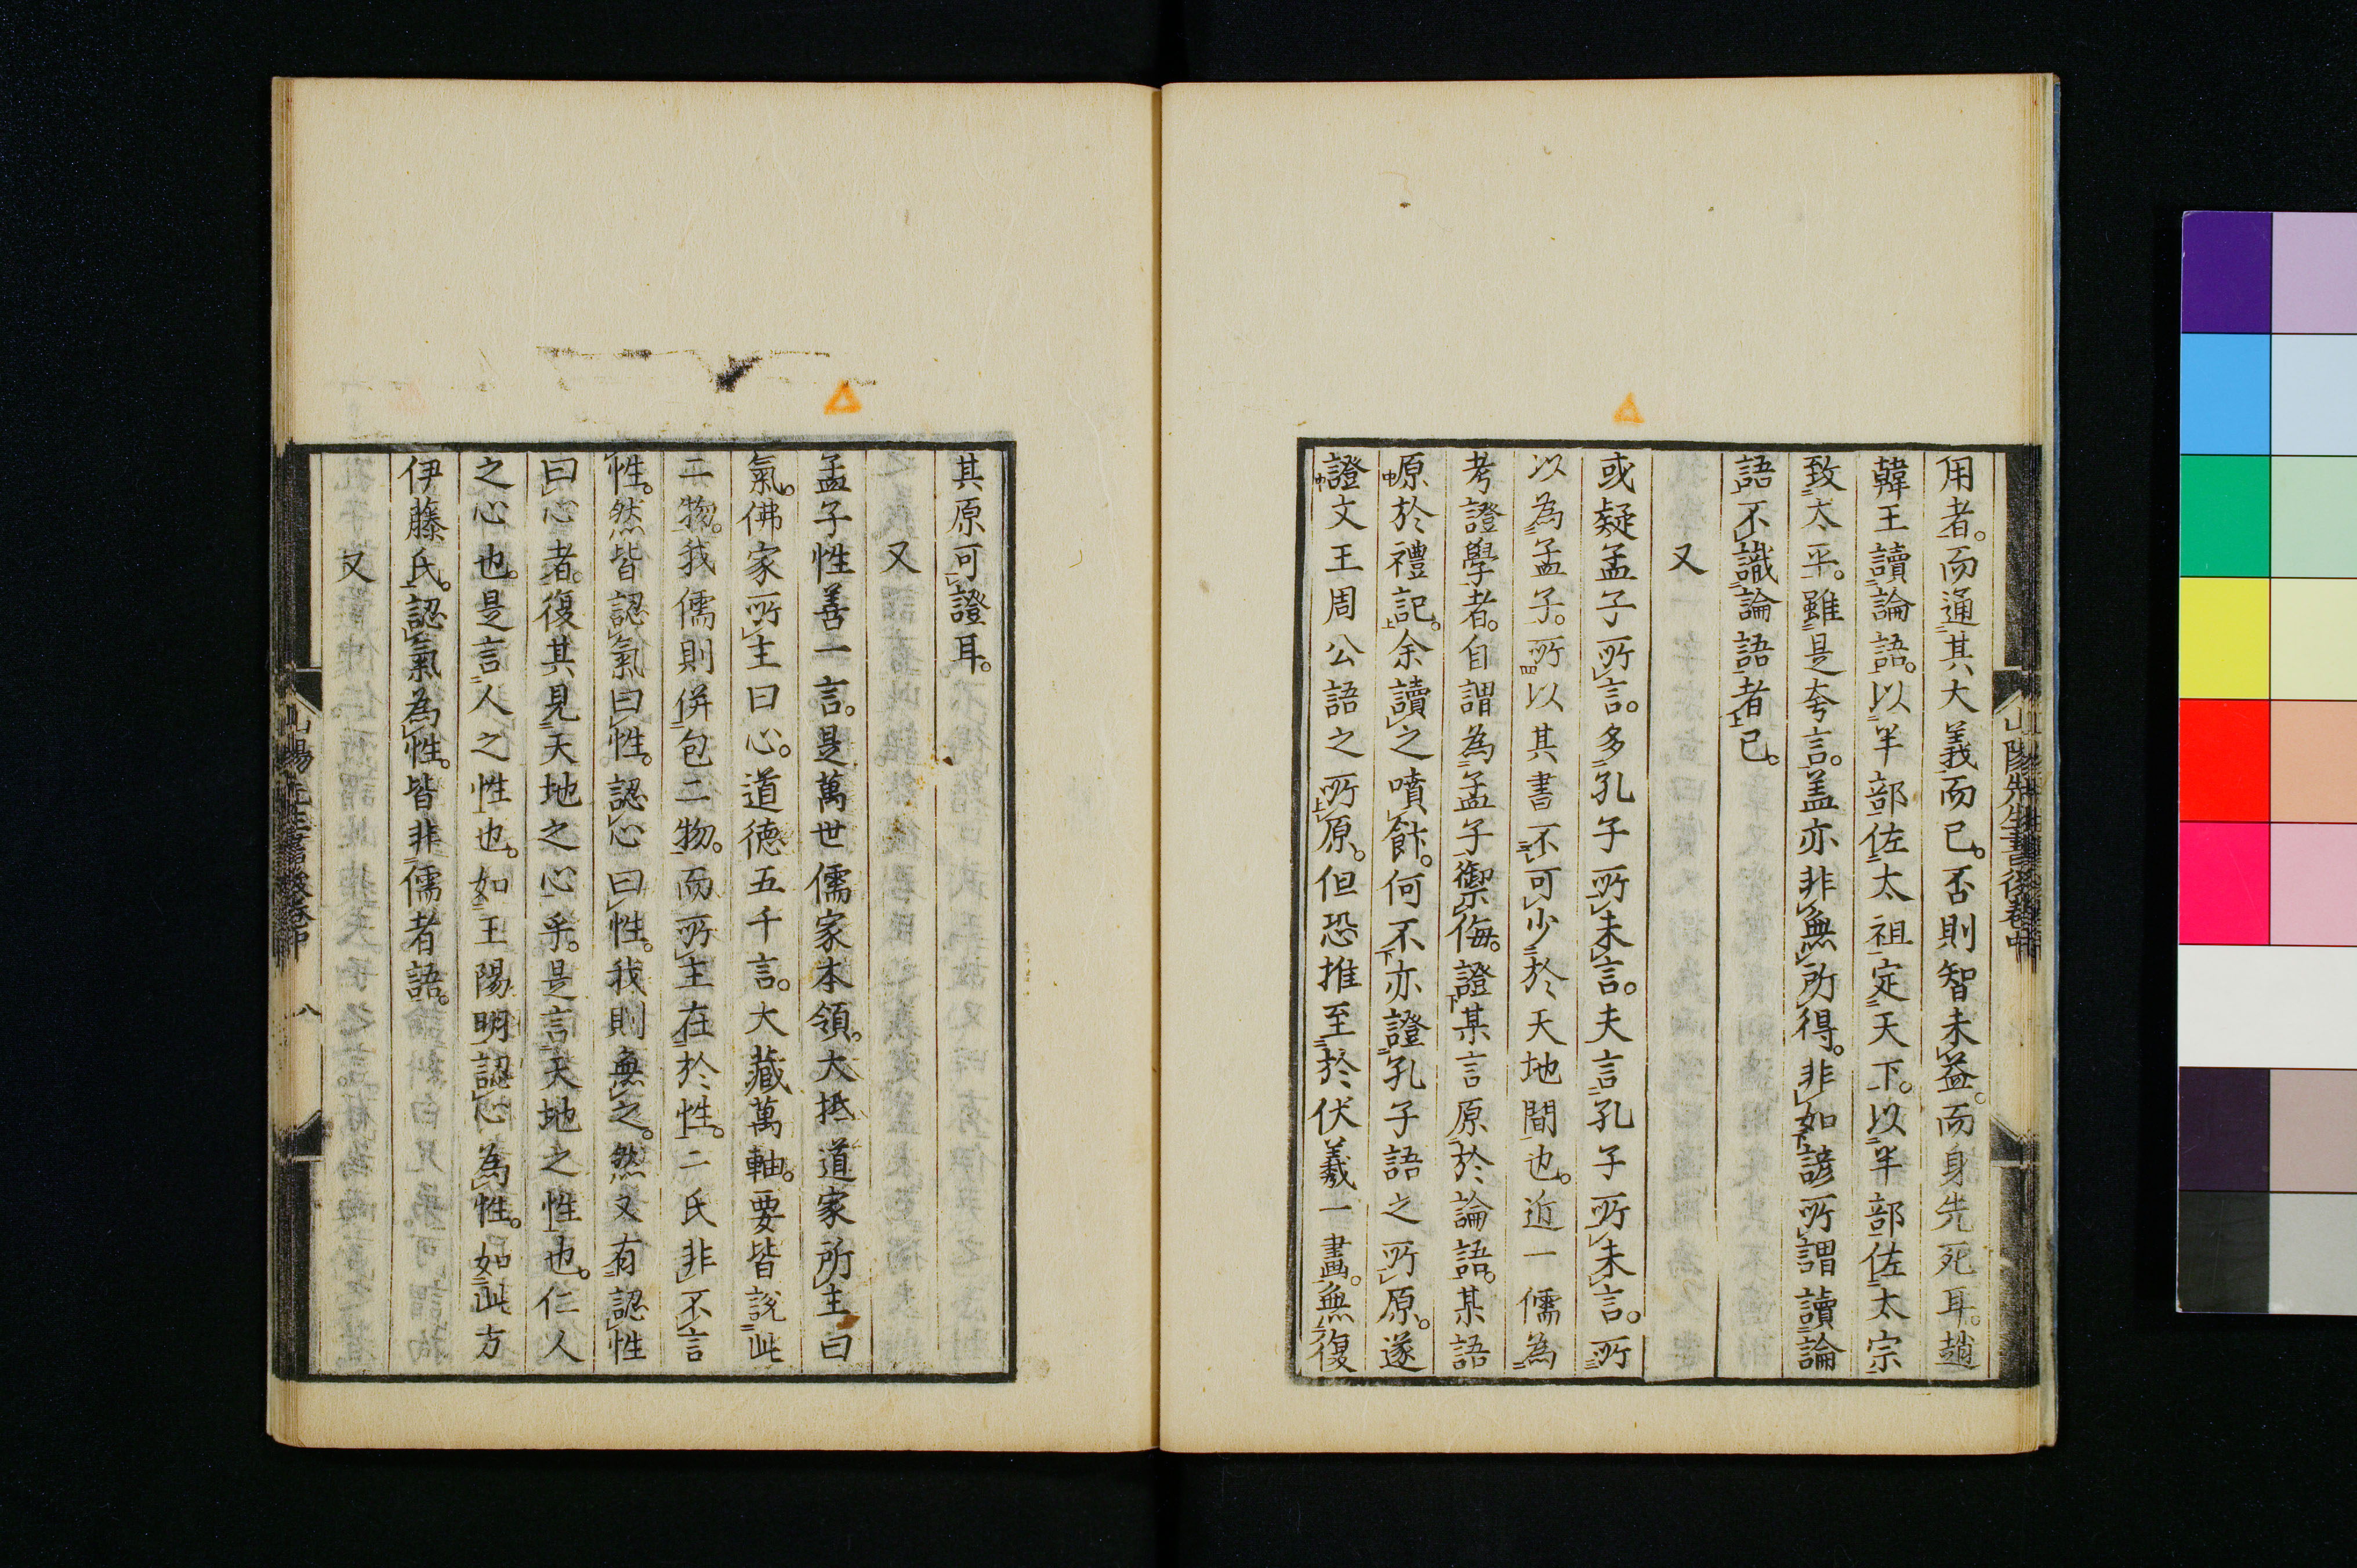 用者。而通其大義而已。否則智未益。而身先死耳。趙
韓王讀論語。以半部佐太祖定天下。以半部佐太宗
致太平。雖是夸言。盖亦非無所得。非如諺所謂讀論
語不識論語者已。
又
或疑孟子所言。多孔子所未言。夫言孔子所未言。所
以為孟子。所以其書不可少於天地間也。近一儒為
考證學者。自謂為孟子禦侮。證某言原於論語。某語
原於禮記。余讀之噴飰。何不亦證孔子語之所原。遂
證文王周公語之所原。但恐推至於伏羲一畫。無復
其原可證耳。
又
孟子性善一言。是萬世儒家本領。大抵道家所主曰
氣。佛家所主曰心。道德五千言。大藏萬軸。要皆說此
二物。我儒則併包二物。而所主在於性。二氏非不言
性。然皆認氣曰性。認心曰性。我則無之。然又有認性
曰心者。復其見天地之心乎。是言天地之性也。仁人
之心也。是言人之性也。如王陽明認心為性。如此方
伊藤氏。認氣為性。皆非儒者語。
又
山陽先生書後卷中
八